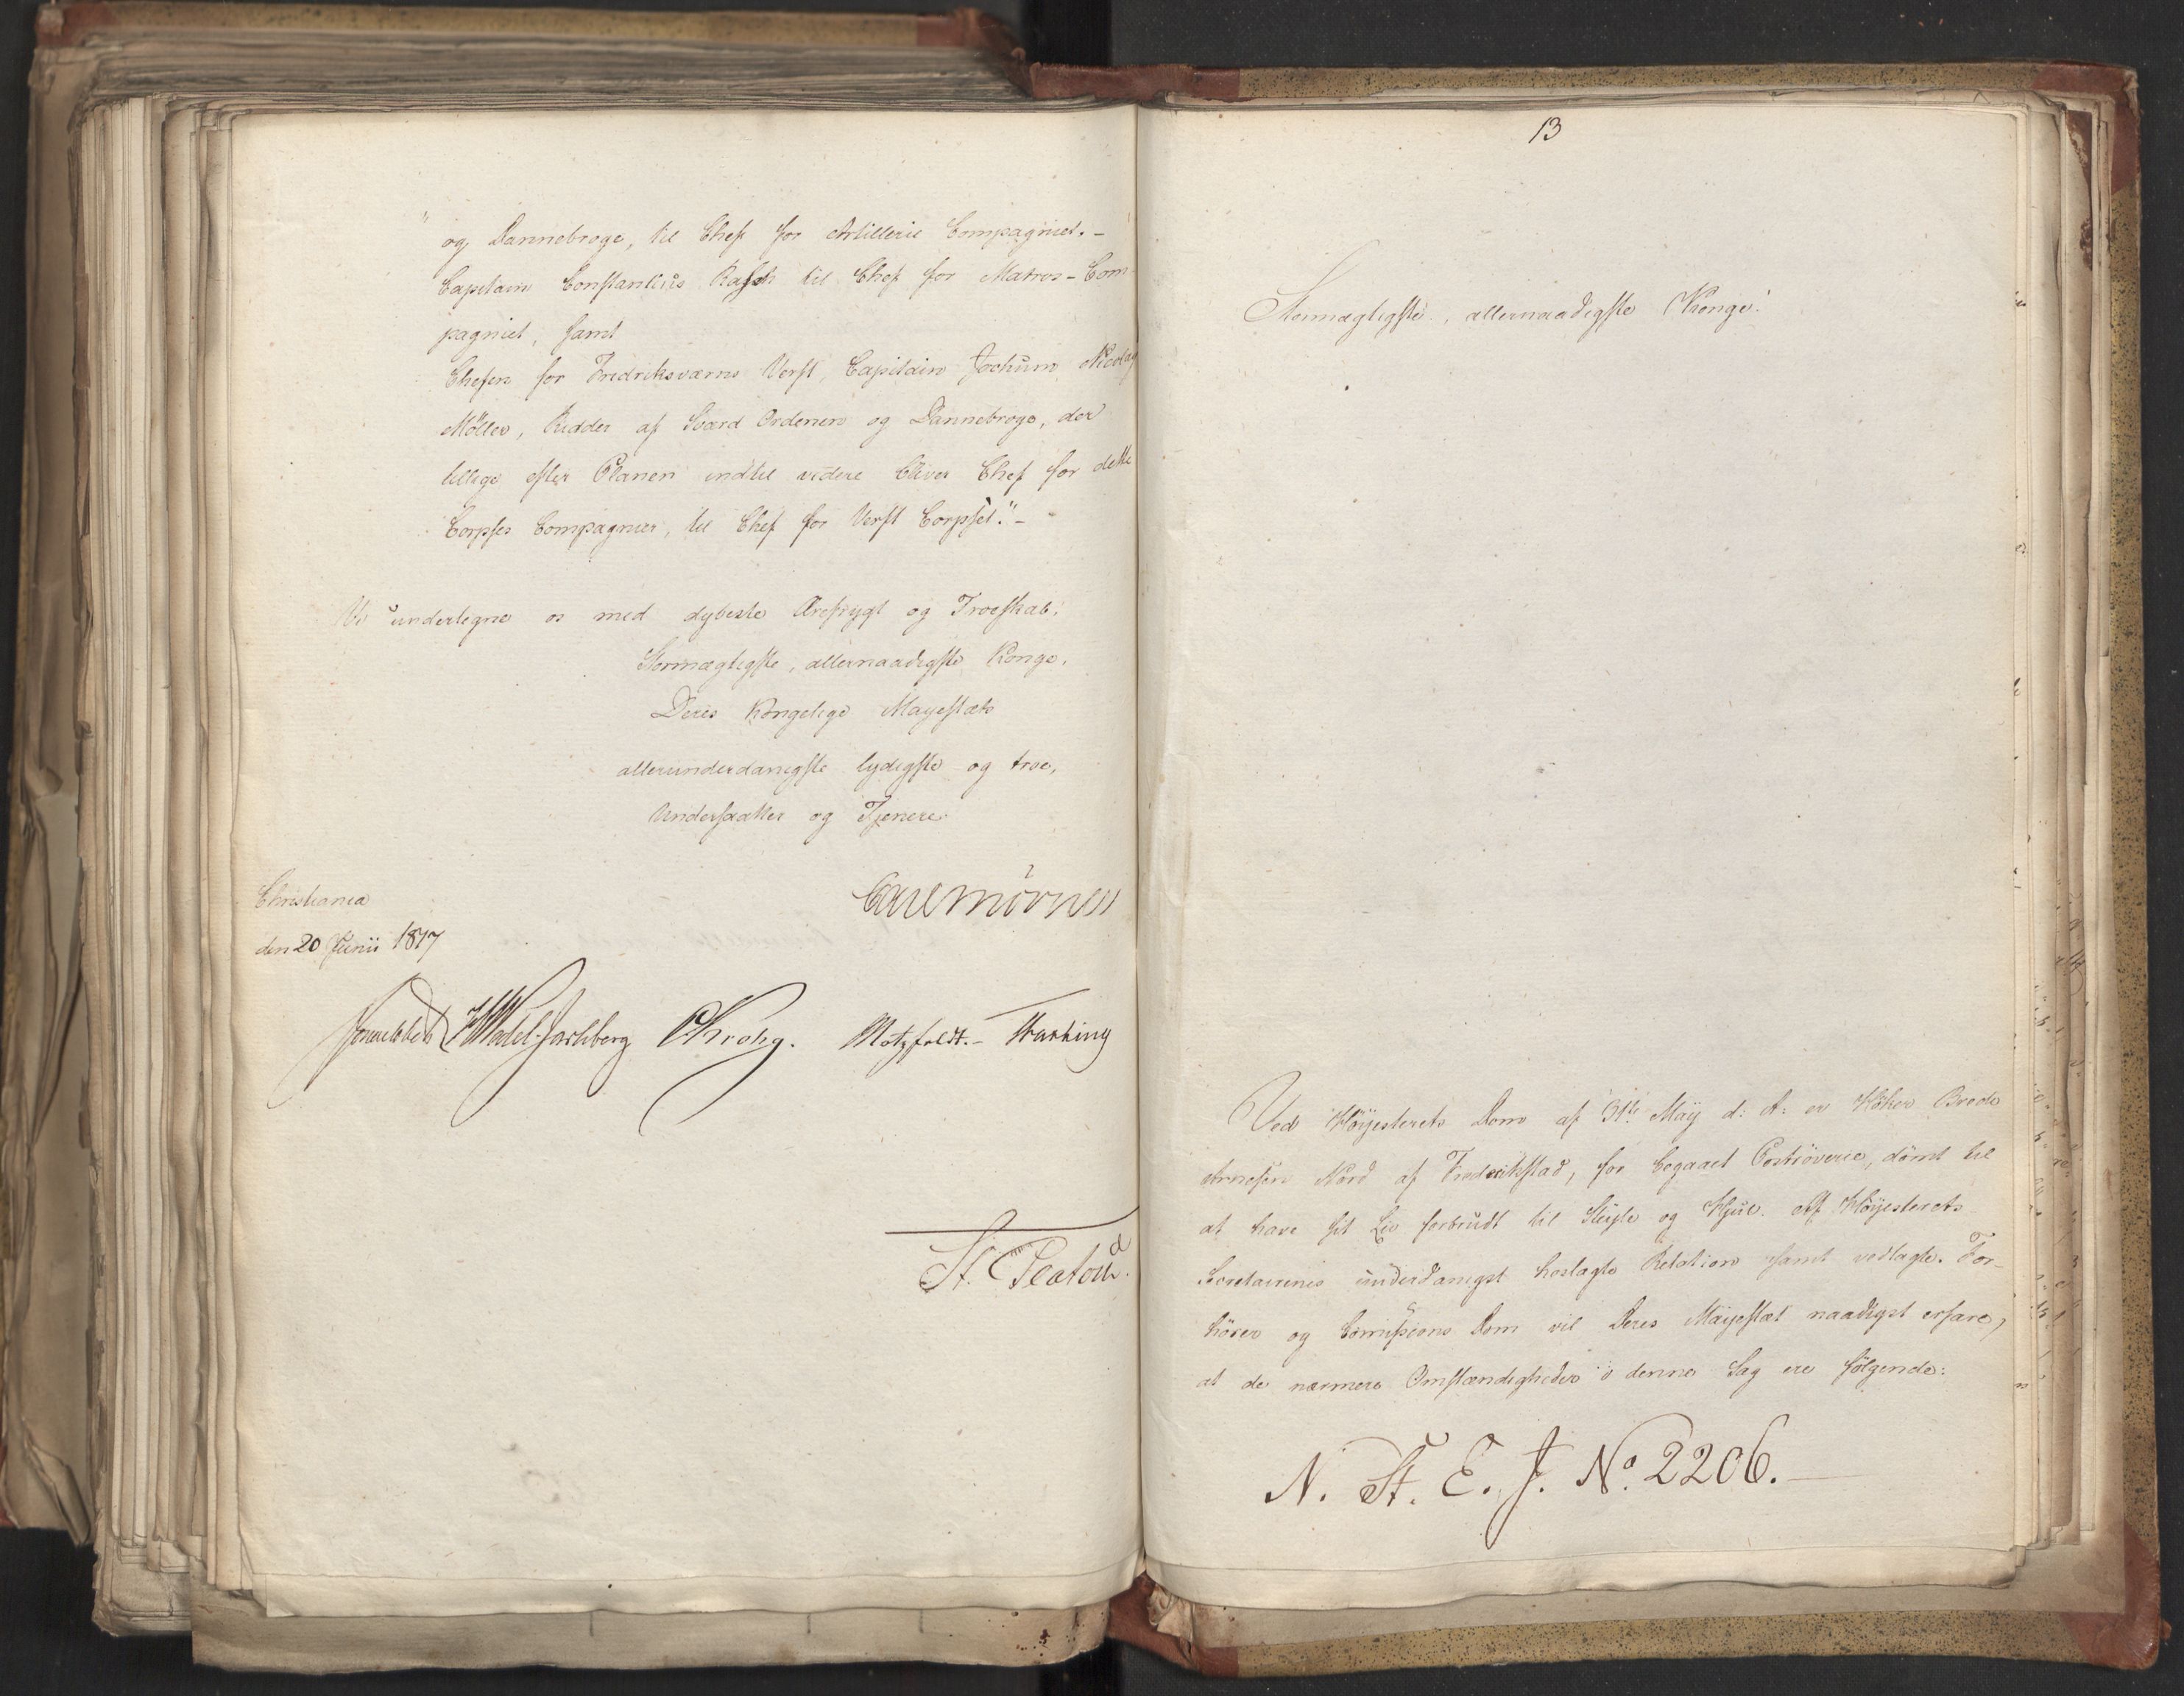 " og Dannebroge, til Chef for Artillerie Compagniet. -
Capitain Constantius Rasch til Chef for Matros-Com-
pagniet, samt
Chefen for Fredriksværns Verft, Capitain Jochum Nicolay
Möller, Ridder af Sværd Ordenen og Dannebroge, der
tillige efter Planen indtil videre bliver Chef for dette
Corpses Compagnier, til Chef for Verft Corpset." -
Vi undertegne os med dybeste Ærefrygt og Troeskab.
Stormægtigste, allernaadigste Konge,
Deres Kongelige Mayestæts
allerunderdanigste lydigste og troe,
Undersaatter og Tjenere
Carl Mörner
Christiania
den 20 Junii 1817
Sommelhielm HWedel-Jarlsberg CKrohg. Motzfeldt. - Fasting
St. Platou
13
Stormægtigste, allernaadigste Konge!
Ved Höyesterets Dom af 31te May d: A: er Höker Brede
Arnesen Nord af Fredrikstad, for begaaet Poströverie, dömt til
at have sit Liv forbrudt til Steyle og Hjul. Af Höyesterets
Secretairenes underdanigst hoslagte Relation samt vedlagte. For-
hörer og Commissions Dom vil Deres Mayestæt naadigst erfare,
at de nærmere Omstændigheder i denne Sag ere fölgende:
N. St. E. J. No. 2206. -